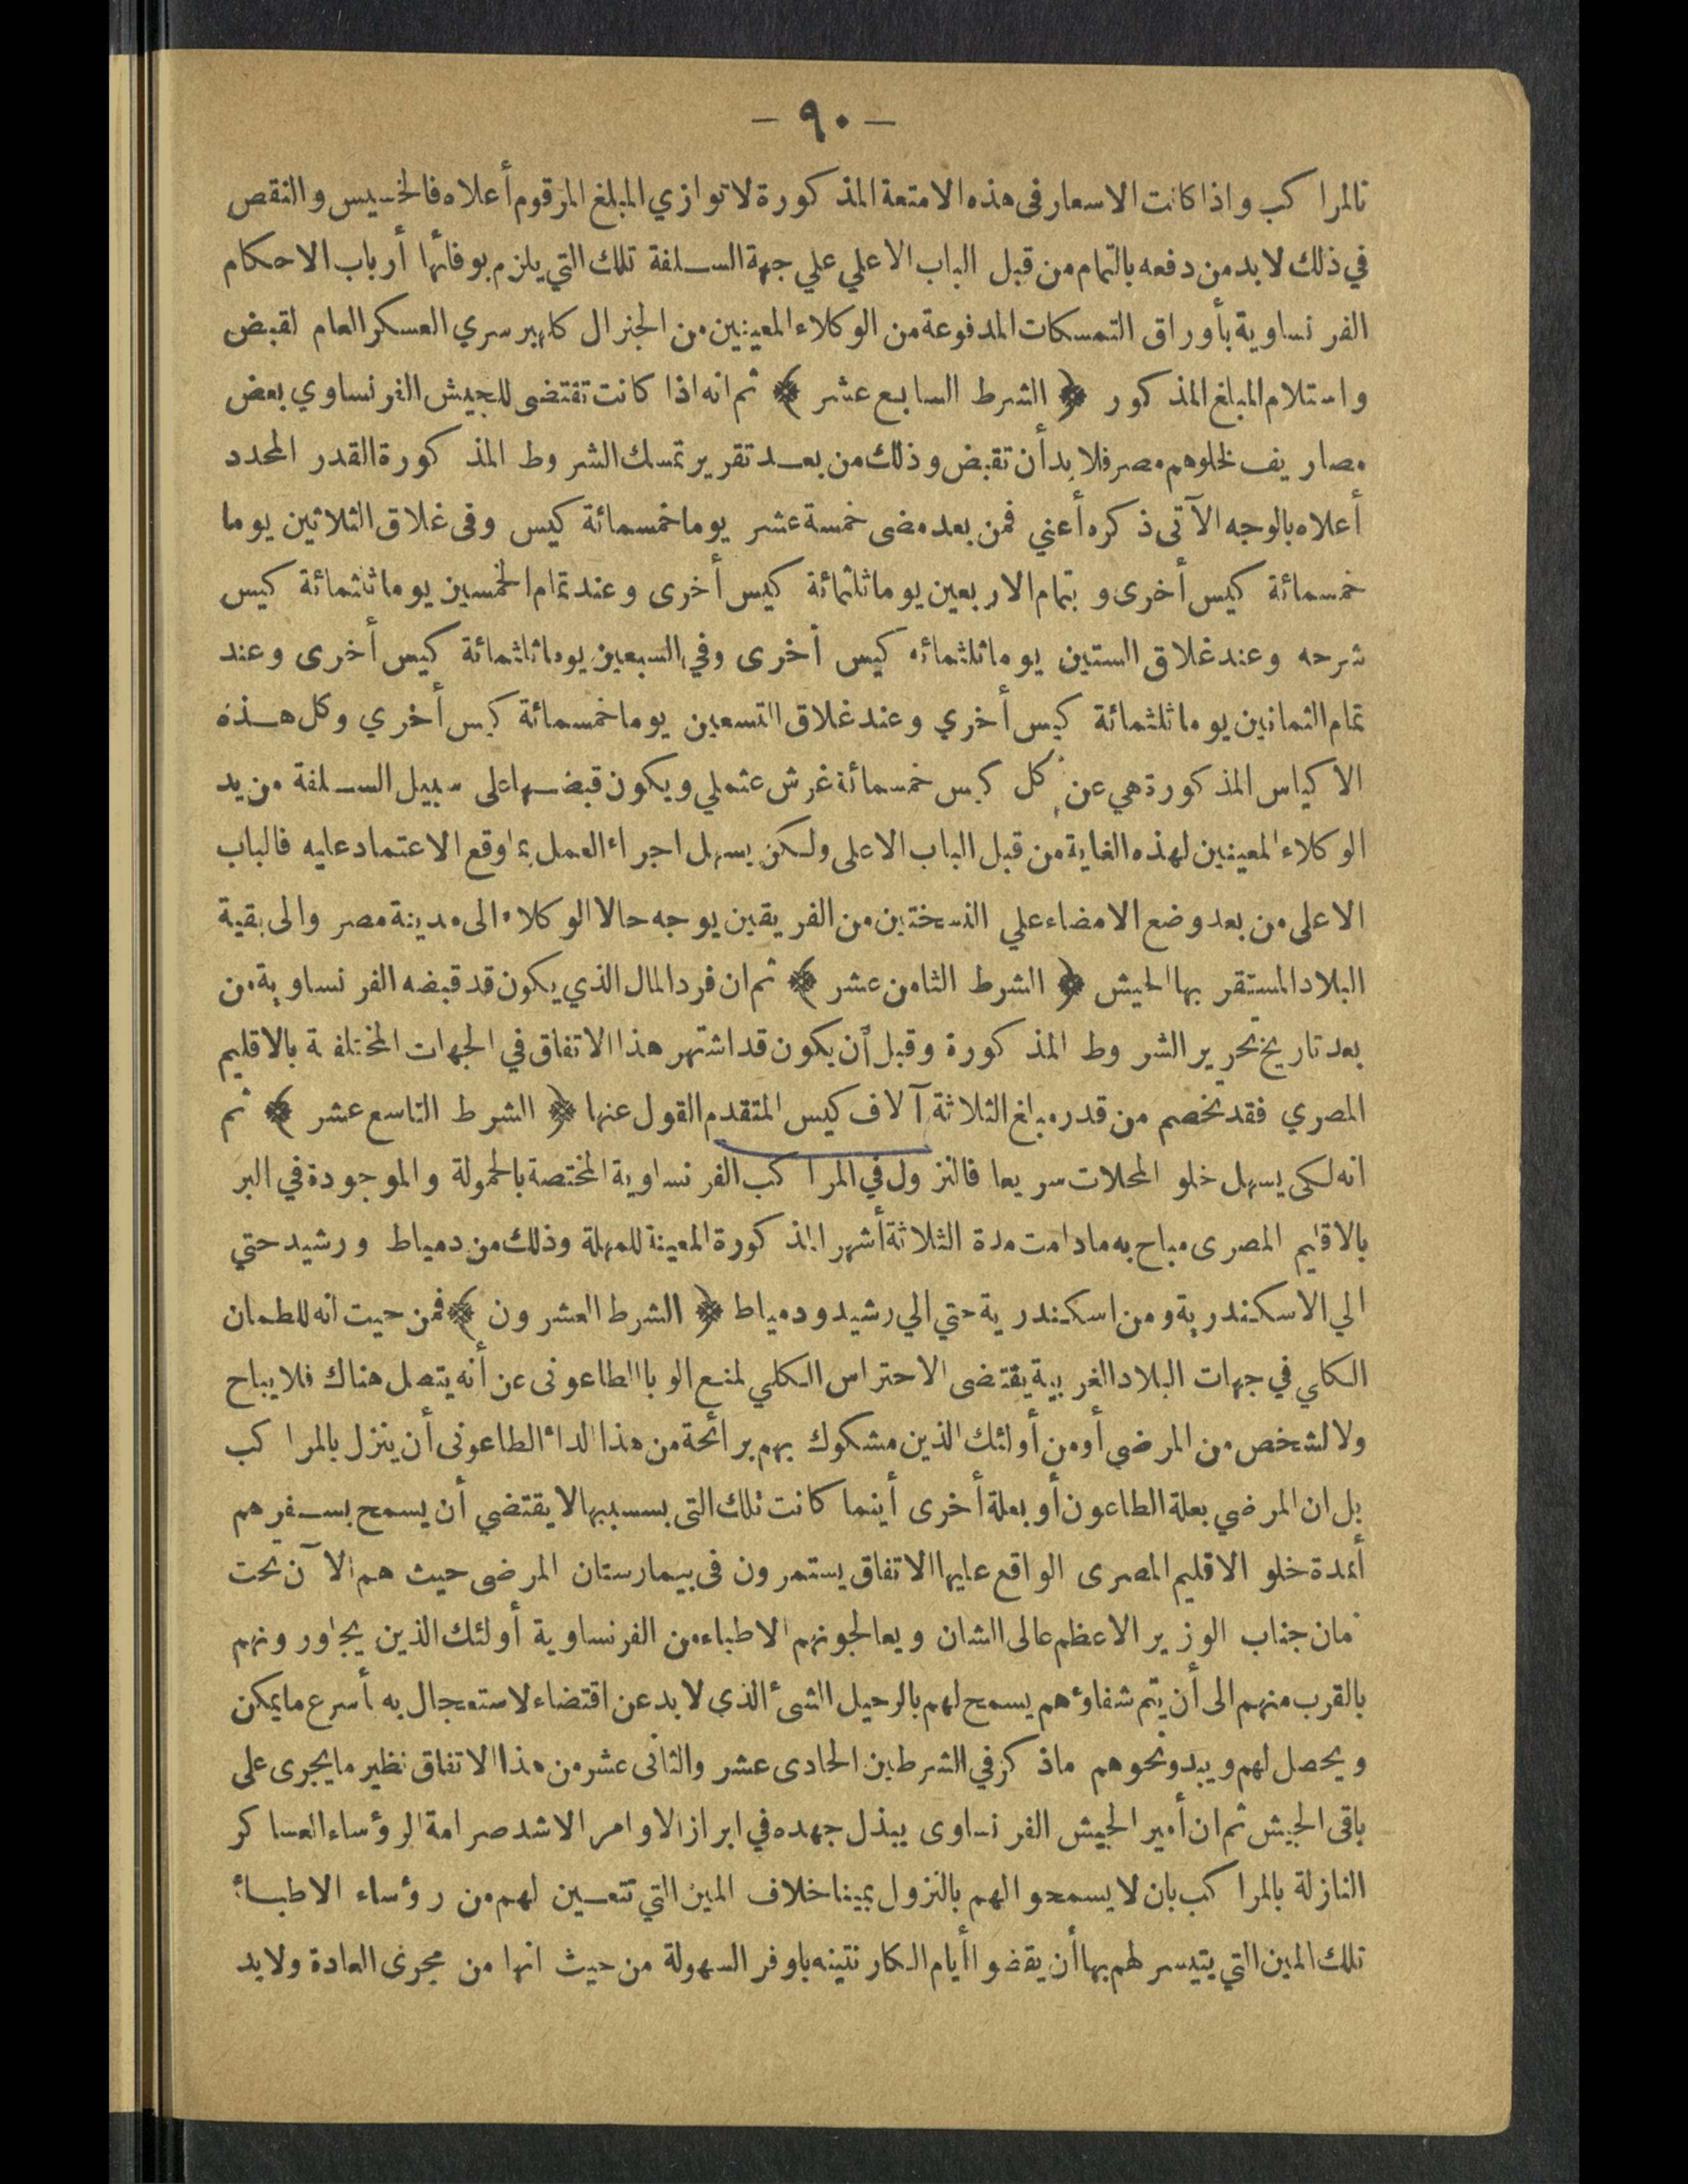 — ٩٠ —
تالمراكب واذا كانت الاسعار فى هذه الامتعة المذكورة لا توازي المبلغ المرقوم أعلاه فالخسيس والنقص
في ذلك لا بد من دفعه بالتمام من قبل الباب الاعلي علي جهة السلفة تلك التي يلزم بوفائها أرباب الاحكام
الفرنساوية بأوراق التمسكات المدفوعة من الوكلاء المعينين من الجنرال كلهبر سري العسكر العام لقبض
واستلام المبلغ المذكور ﴿ الشرط السابع عشر ﴾ ثم انه اذا كانت تقتضى للجيش الفرنساوي بعض
مصاريف لخلوهم مصر فلا بد أن تقبض وذلك من بعد تقرير تمسك الشروط المذكورة القدر المحدد
أعلاه بالوجه الآتى ذكره أعني فمن بعد مضى خمسة عشر يوما خمسمائة كيس وفى غلاق الثلاثين يوما
خمسمائة كيس أخرى و بتمام الاربعين يوما ثلثمائة كيس أخرى وعند تمام الخمسين يوما ثلثمائة كيس
شرحه وعند غلاق الستين يوما ثلثمائه كيس أخرى وفي السبعين يوما ثلثمائة كيس أخرى وعند
تمام الثمانين يوما ثلثمائة كيس أخري وعند غلاق التسعين يوما خمسمائة كيس أخري وكل هذه
الاكياس المذكورة هي عن كل كيس خمسمائة غرش عثملي ويكون قبضها على سبيل السلفة من يد
الوكلاء المعينين لهذه الغاية من قبل الباب الاعلى ولكن يسهل اجراء العمل بما وقع الاعتماد عليه فالباب
الاعلى من بعد وضع الامضاء علي النسختين من الفريقين يوجه حالا الوكلاء الى مدينة مصر والى بقية
البلاد المستقر بها الجيش ﴿ الشرط الثامن عشر ﴾ ثم ان فرد المال الذي يكون قد قبضه الفرنساوية من
بعد تاريخ تحرير الشروط المذكورة وقبل أن يكون قد اشتهر هذا الاتفاق في الجهات المختلفة بالاقليم
المصري فقد تخصم من قدر مبلغ الثلاثة آلاف كيس المتقدم القول عنها ﴿ الشرط التاسع عشر ﴾ ثم
انه لكى يسهل خلو المحلات سريعا فالنزول في المراكب الفرنساوية المختصة بالحمولة والموجودة في البر
بالاقليم المصرى مباح به مادامت مدة الثلاثة أشهر المذكورة المعينة للمهلة وذلك من دمياط ورشيد حتي
الي الاسكندرية ومن اسكندرية حتي الي رشيد ودمياط ﴿ الشرط العشرون ﴾ فمن حيث انه للطمان
الكلي في جهات البلاد الغربية يقتضى الاحتراس الكلي لمنع الوبا الطاعونى عن أنه يتصل هناك فلا يباح
ولا لشخص من المرضي أو من أولئك الذين مشكوك بهم برائحة من هذا الداء الطاعونى أن ينزل بالمراكب
بل ان المرضي بعلة الطاعون أو بعلة أخرى أينما كانت تلك التى بسببها لا يقتضي أن يسمح بسفرهم
أمدة خلو الاقليم المصرى الواقع عليها الاتفاق يستمرون فى بيمارستان المرضى حيث هم الآن تحت
مان جناب الوزير الاعظم عالى الشان ويعالجونهم الاطباء من الفرنساوية أولئك الذين يجاورونهم
بالقرب منهم الى أن يتم شفاؤهم يسمح لهم بالرحيل الشئ الذي لا بد عن اقتضاء لاستعجال به أسرع ما يمكن
ويحصل لهم ويبدو نحوهم ماذكر في الشرطين الحادى عشر والثانى عشر من هذا الاتفاق نظير ما يجرى على
باقى الجيش ثم ان أمير الجيش الفرنساوى يبذل جهده في ابراز الاوامر الاشد صرامة الرؤساء العساكر
النازلة بالمراكب بان لا يسمحوا لهم بالنزول بمينا خلاف المين التي تتعين لهم من رؤساء الاطباء
تلك المين التي يتيسر لهم بها أن يقضوا أيام الكارنتينه باوفر السهولة من حيث انها من مجرى العادة ولا بد